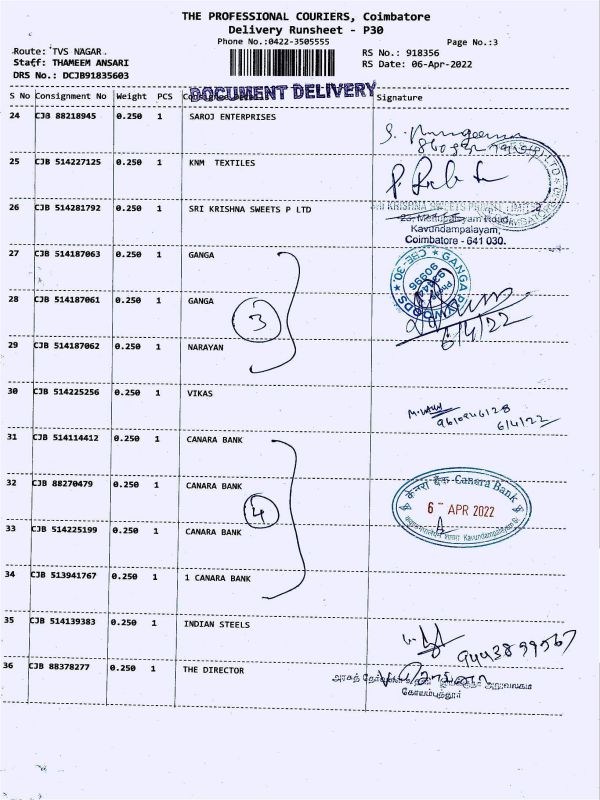 THE PROFESSIONAL COURIERS, Coimbatore
Delivery Runsheet - P30
Phone No.:0422-3505555
Page No.:3
Route: TVS NAGAR
Staff: THAMEEM ANSARI
DRS No.: DCJB91835603
RS No.: 918356
RS Date: 06-Apr-2022
DOCUMENT DELIVERY
S No Consignment No Weight PCS Signature
24 CJB 88218945 0.250 1 SAROJ ENTERPRISES
25 CJB 514227125 0.250 1 KNM TEXTILES
26 CJB 514281792 0.250 1 SRI KRISHNA SWEETS P LTD
SRI KRISHNA SWEETS PRIVATE LIMITED
Kavundampalayam,
Coimbatore - 641 030.
27 CJB 514187063 0.250 1 GANGA
GANGA PLYWOODS ★ CBE-30. ★
28 CJB 514187061 0.250 1 GANGA
3
6/4/22
29 CJB 514187062 0.250 1 NARAYAN
30 CJB 514225256 0.250 1 VIKAS
9610946128
6/4/22
31 CJB 514114412 0.250 1 CANARA BANK
32 CJB 88270479 0.250 1 CANARA BANK
4
केनरा बैंक Canara Bank
6 - APR 2022
Kavundampalayam
33 CJB 514225199 0.250 1 CANARA BANK
34 CJB 513941767 0.250 1 1 CANARA BANK
35 CJB 514139383 0.250 1 INDIAN STEELS
9443899567
36 CJB 88378277 0.250 1 THE DIRECTOR
அரசுத்
கோயம்புத்தூர்